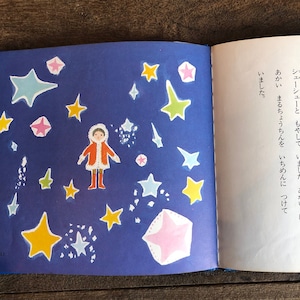 シューシューと もやして
あかい まるちょうちんを いちめんに つけて
いました。